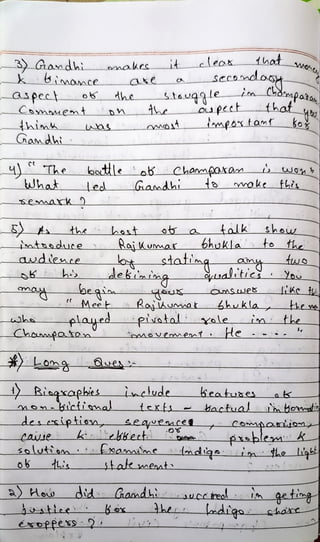 3) Gandhi makes it clear that money
& finance are a secondary
aspect of the struggle in Champaran
Comment on the aspect that you
think was most important for
Gandhi.
4) "The battle of Champaran is won"
What led Gandhi to make this
remark?
5) As the host of a talk show
introduce Rajkumar Shukla to the
audience by stating any two
of his defining qualities. You
may begin your answer like this
"Meet Rajkumar Shukla, the man
who played pivotal role in the
Champaran movement. He ....."
*) Long Ques:-
1) Biographies include features of
non-fictional texts - factual information
description, sequence, comparision,
cause & effect or problem &
solution. Examine Indigo in the light
of this statement.
2) How did Gandhi succeed in geting
justice for the Indigo share
croppers?